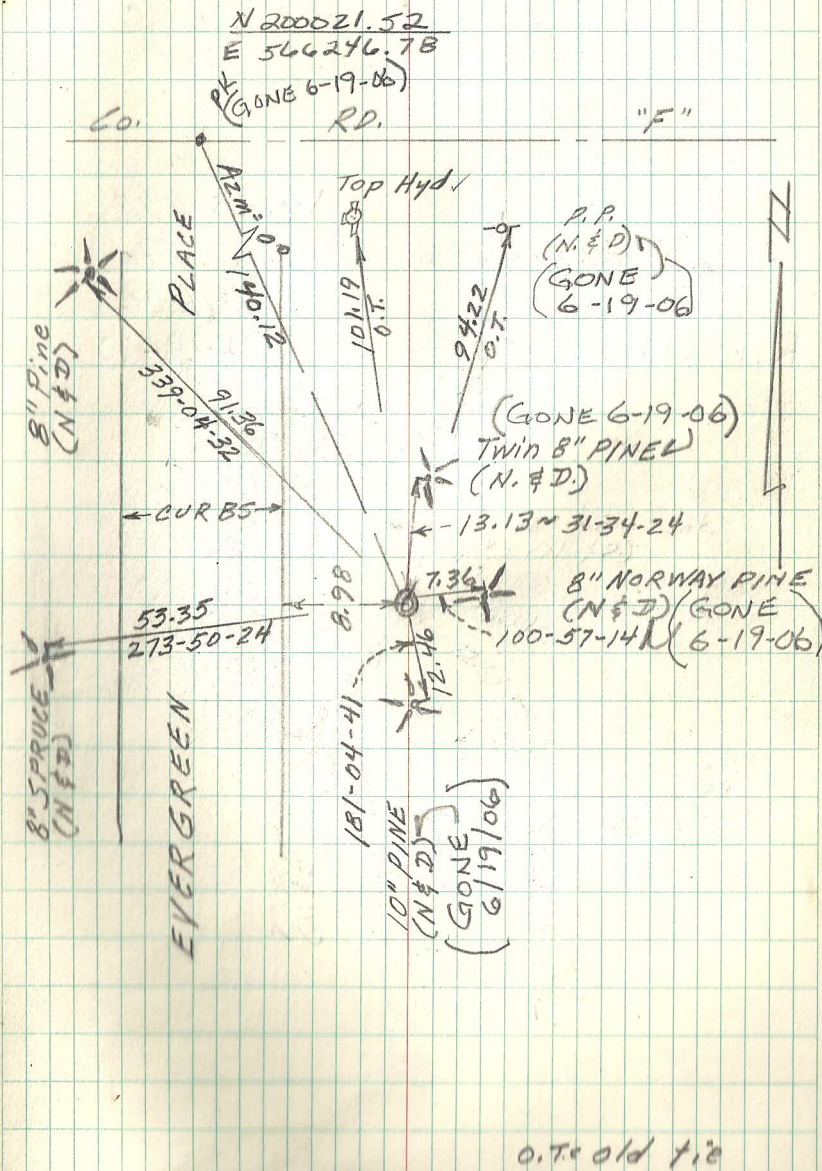 N 200021.52
E 566246.78
PK
(GONE 6-19-06)
Co. RD. "F"
Top Hyd.
Azm = 0°
140.12
PLACE
101.19
O.T.
94.22
O.T.
P.P.
(N. & D)
(GONE
6-19-06)
8" Pine
(N & D)
91.36
339-04-32
(GONE 6-19-06)
Twin 8" PINE
(N. & D.)
CURBS
13.13 ~ 31-34-24
8.98
7.36
8" NORWAY PINE
(N & D) (GONE
100-57-14 6-19-06)
53.35
273-50-24
12.46
181-04-41
8" SPRUCE
(N & D)
EVERGREEN
10" PINE
(N & D)
(GONE
6/19/06)
O.T. = old tie